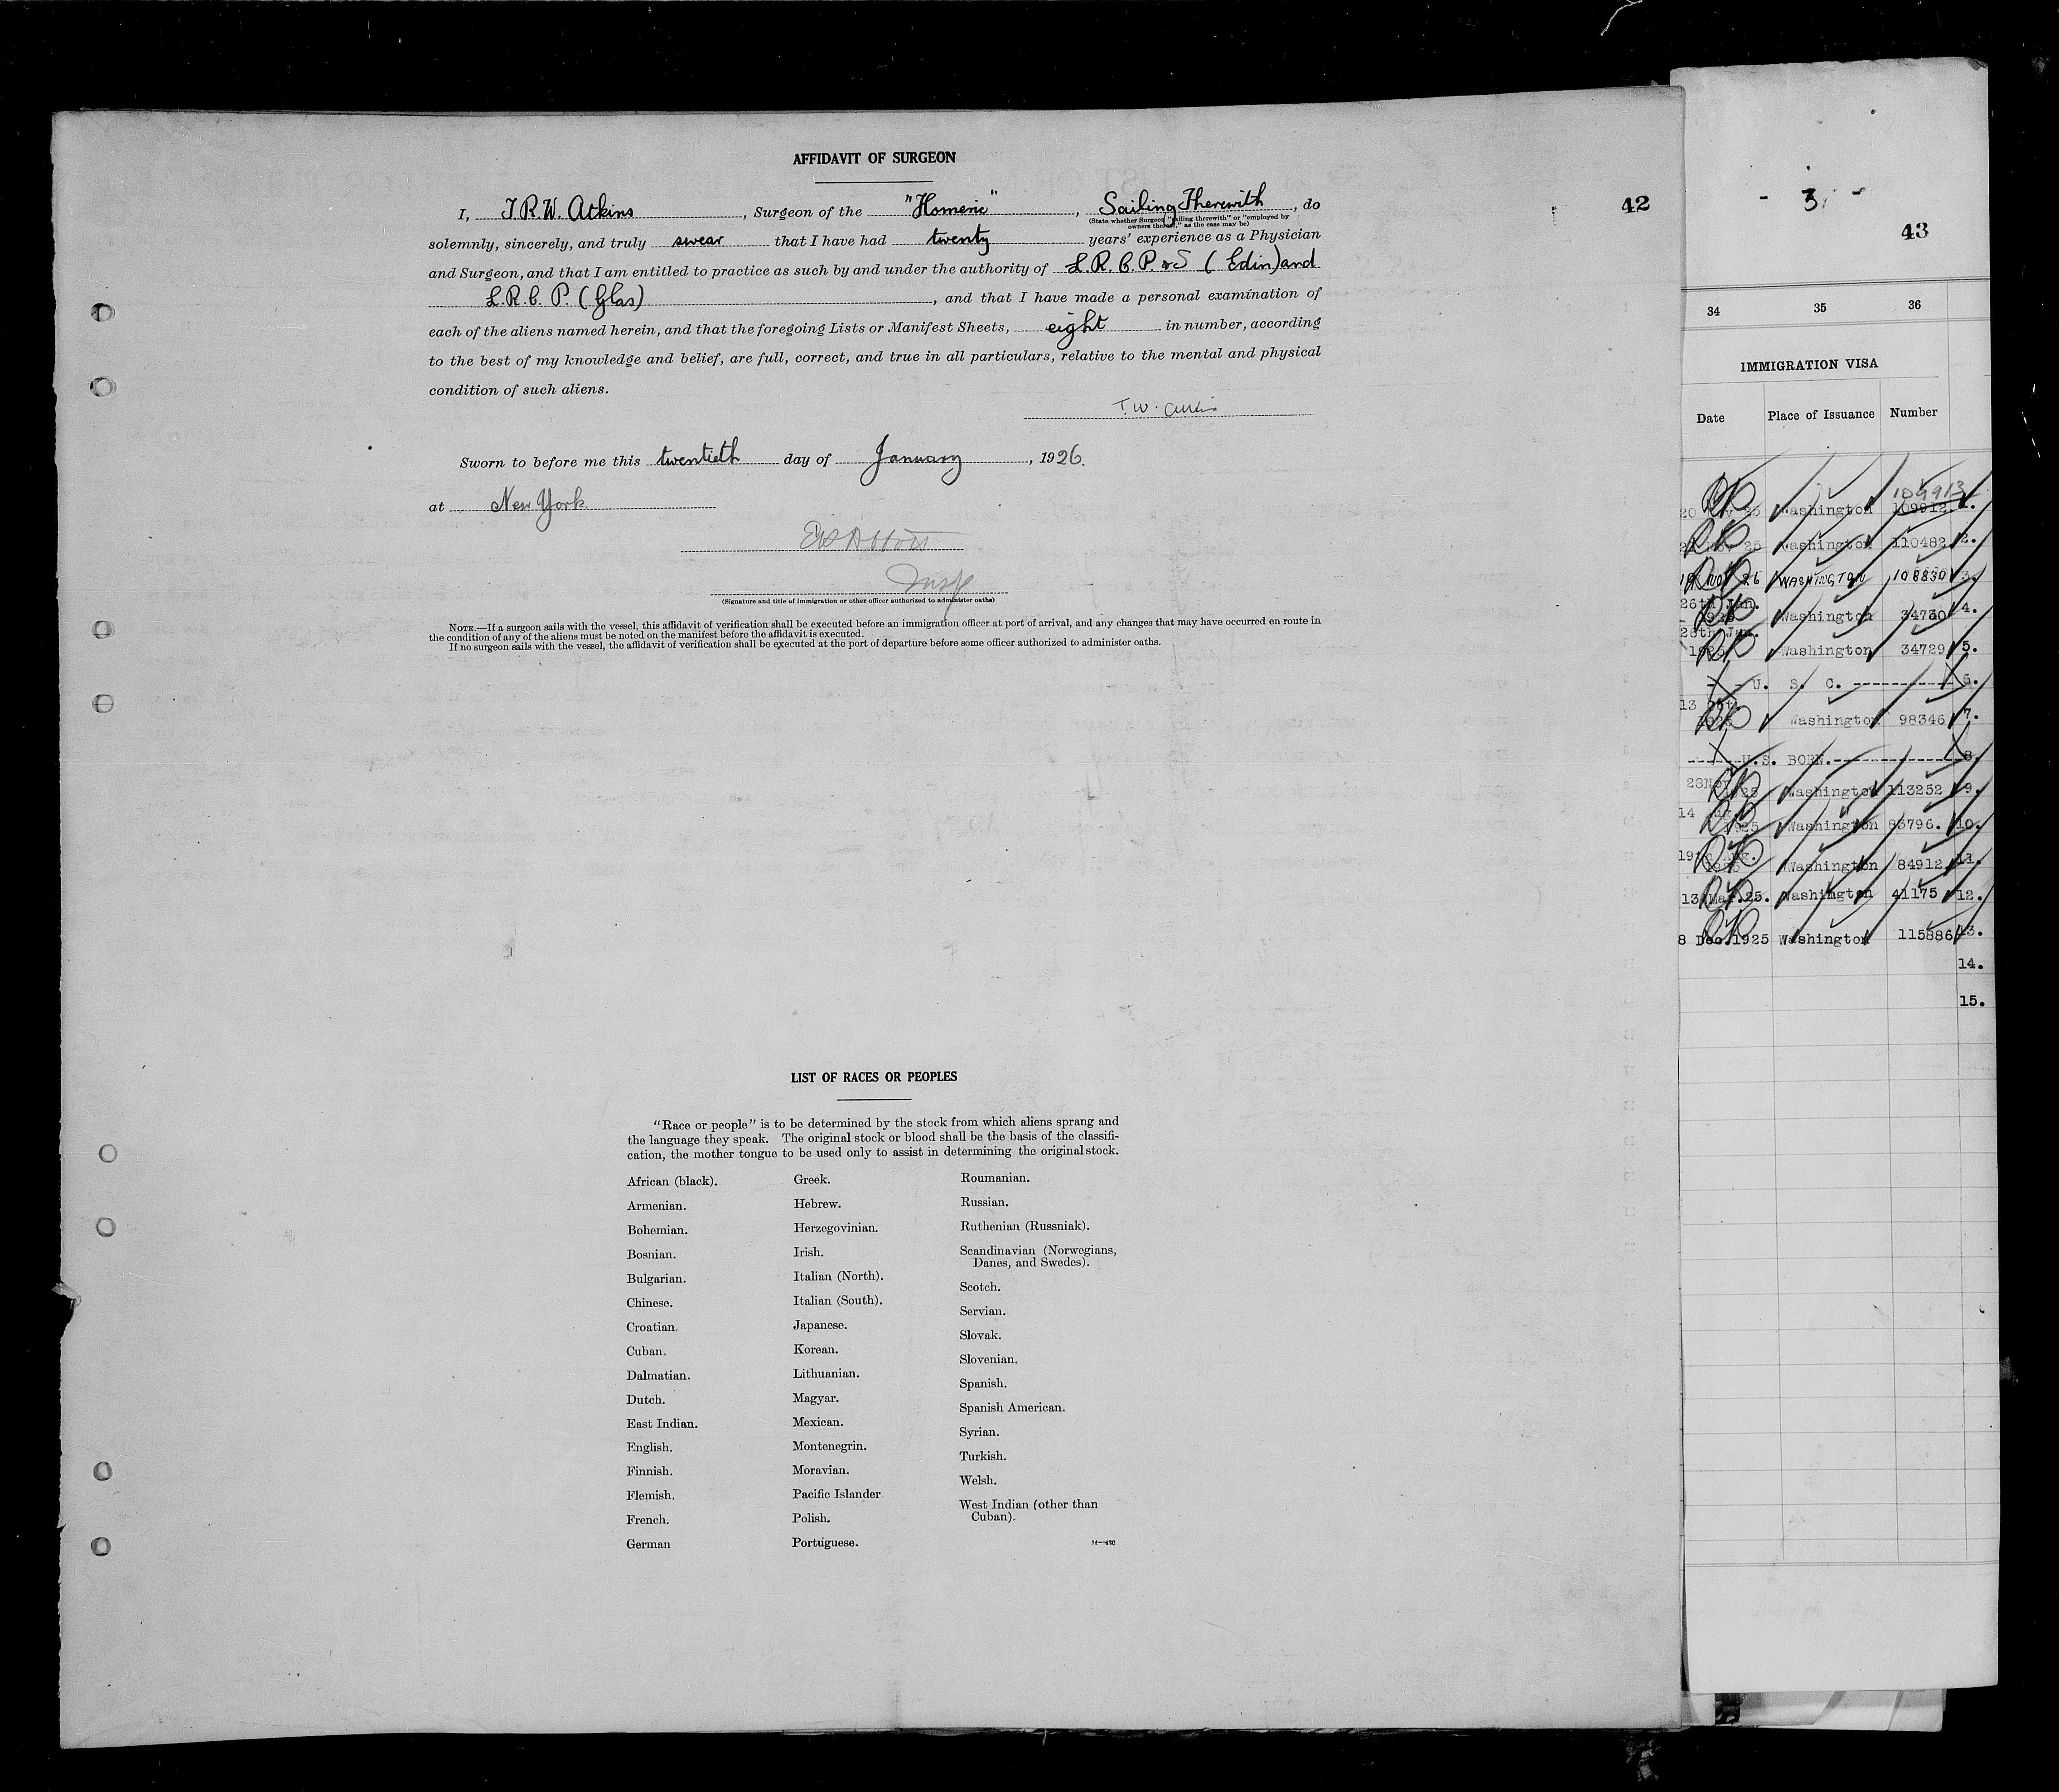 AFFIDAVIT OF SURGEON
I, T R.W. Atkins, Surgeon of the "Homeric", Sailing Therewith, do
(State whether Surgeon "sailing therewith" or "employed by
owners thereof," as the case may be)
solemnly, sincerely, and truly swear that I have had twenty years' experience as a Physician
and Surgeon, and that I am entitled to practice as such by and under the authority of L.R.C.P.&S (Edin) and
L.R.C.P. (Glas), and that I have made a personal examination of
each of the aliens named herein, and that the foregoing Lists or Manifest Sheets, eight in number, according
to the best of my knowledge and belief, are full, correct, and true in all particulars, relative to the mental and physical
condition of such aliens.
Sworn to before me this twentieth day of January, 1926.
at New York
Insp
(Signature and title of immigration or other officer authorized to administer oaths)
NOTE.—If a surgeon sails with the vessel, this affidavit of verification shall be executed before an immigration officer at port of arrival, and any changes that may have occurred en route in
the condition of any of the aliens must be noted on the manifest before the affidavit is executed.
If no surgeon sails with the vessel, the affidavit of verification shall be executed at the port of departure before some officer authorized to administer oaths.
LIST OF RACES OR PEOPLES
"Race or people" is to be determined by the stock from which aliens sprang and
the language they speak. The original stock or blood shall be the basis of the classifi-
cation, the mother tongue to be used only to assist in determining the original stock.
African (black).
Armenian.
Bohemian.
Bosnian.
Bulgarian.
Chinese.
Croatian.
Cuban.
Dalmatian.
Dutch.
East Indian.
English.
Finnish.
Flemish.
French.
German
Greek.
Hebrew.
Herzegovinian.
Irish.
Italian (North).
Italian (South).
Japanese.
Korean.
Lithuanian.
Magyar.
Mexican.
Montenegrin.
Moravian.
Pacific Islander
Polish.
Portuguese.
Roumanian.
Russian.
Ruthenian (Russniak).
Scandinavian (Norwegians,
Danes, and Swedes).
Scotch.
Servian.
Slovak.
Slovenian.
Spanish.
Spanish American.
Syrian.
Turkish.
Welsh.
West Indian (other than
Cuban).
42
- 3 -
43
34 35 36
IMMIGRATION VISA
Date Place of Issuance Number
109913
Washington 109912 1.
25 Washington 110482 2.
WASHINGTON 108830 3.
26th Jan.
Washington 34730 4.
Washington 34729 5.
U. S. C. 6.
13
Washington 98346 7.
U.S. BORN. 8.
28Nov
1925 Washington 113252 9.
14
1925 Washington 83796. 10.
Washington 84912 11.
13 Mar.25. Washington 41175 12.
8 Dec.1925 Washington 115886 13.
14.
15.